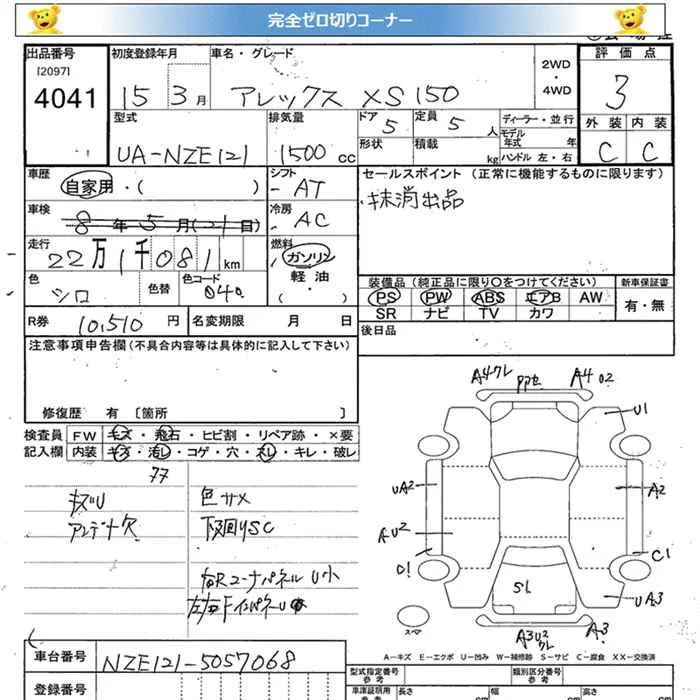 完全ゼロ切りコーナー
出品番号 初度登録年月 車名・グレード 評価点
[2097]
4041 15 3月 アレックス XS150 2WD・4WD 3
型式 排気量 ドア 5 定員 5 人 ディーラー・並行 外装 内装
UA-NZE121 1500 cc 形状 積載 kg モデル年式 年 ハンドル 左・右 C C
車歴 シフト セールスポイント (正常に機能するものに限ります)
自家用・( ) AT 抹消出品
車検 冷房
8年5月(21日) AC
走行 燃料
22万1千081km ガソリン
色 色替 色コード 軽油 装備品 (純正品に限り○をつけてください) 新車保証書
シロ 040 ( ・ ) PS PW ABS エアB AW 有・無
SR ナビ TV カワ
R券 10,510 円 名変期限 月 日 後日品
注意事項申告欄(不具合内容等は具体的に記入して下さい)
修復歴 有 〔箇所 〕
検査員 FW キズ・飛石・ヒビ割・リペア跡・×要
記入欄 内装 キズ・汚レ・コゲ・穴・スレ・キレ・破レ
キズU 色サメ
アンテナ欠 下廻りSC
右Rコーナパネル U小
A4ワレ A4 02
U1
UA2 A2
AU2
C1
SL UA3
スペア A3U2 ワレ A3
A-キズ E-エクボ U-凹み W-補修跡 S-サビ C-腐食 XX-交換済
車台番号 NZE121-5057068
登録番号 型式指定番号 参考 類別区分番号 参考
車庫証明用 参考 長さ cm 幅 cm 高さ cm